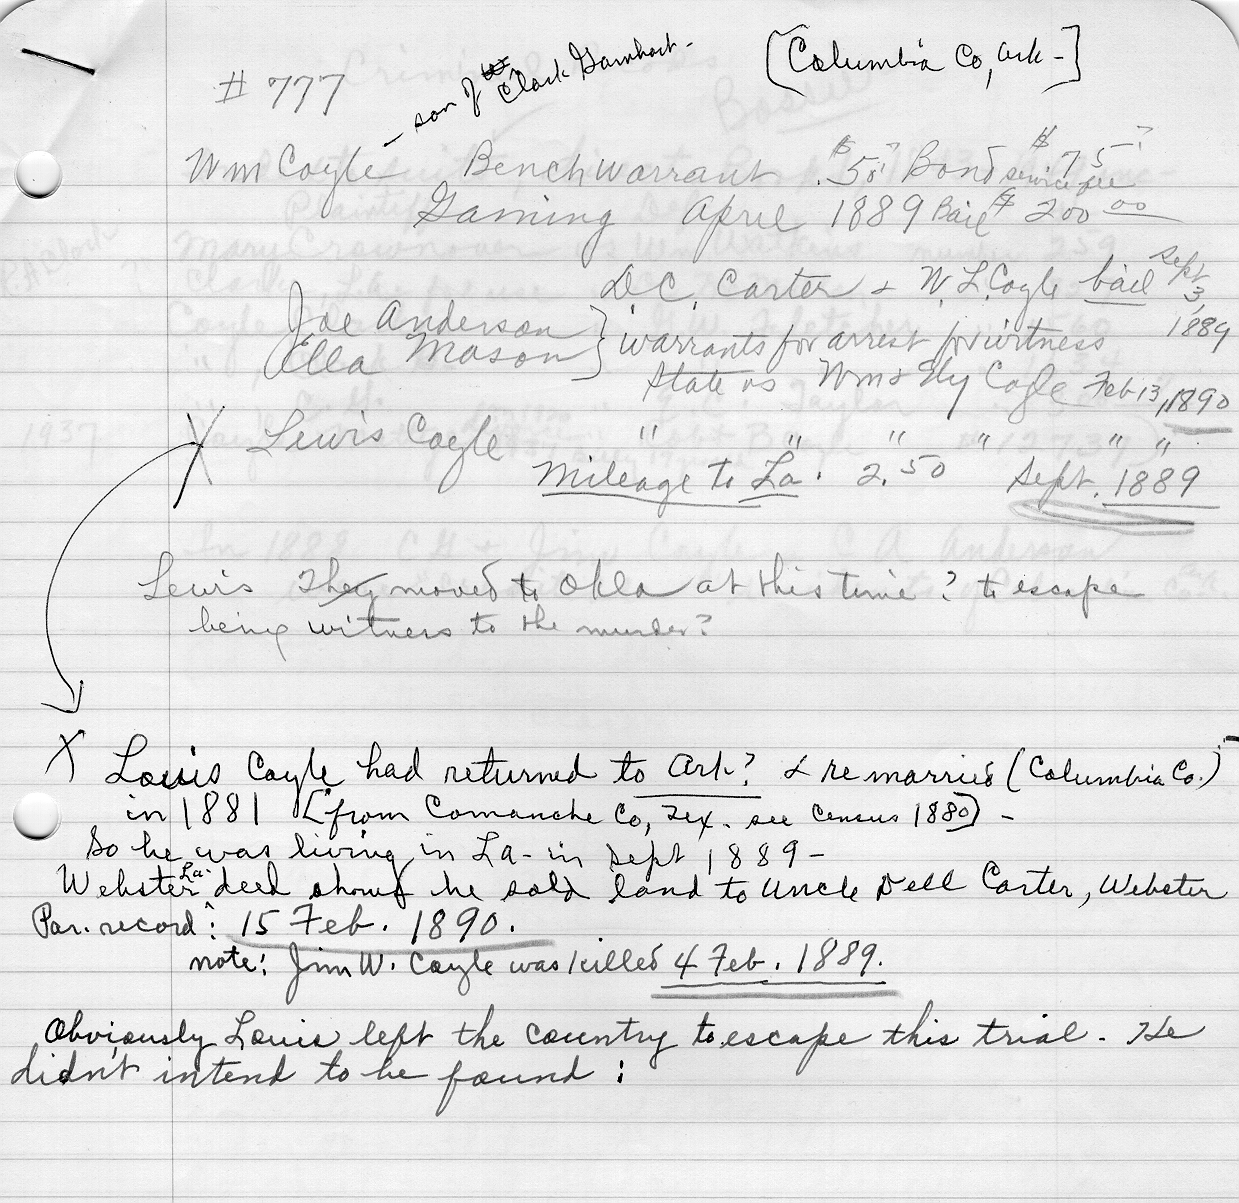 [Columbia Co, Ark-]
# 777
- son of Clark
Wm Cogle Bench Warrant $.50? Bond service fee $.75?
Gaming April 1889 Bail $200 00
D.C. Carter & W.L. Cogle bail Sept 3, 1889
Joe Anderson } warrants for arrest for witness
Ella Mason
State vs Wm & Hy Cogle Feb 13, 1890
X Lewis Cogle " " " " " "
Mileage to La. 2.50 Sept. 1889
Lewis They moved to Okla at this time? to escape
being witness to the murder?
X Louis Cogle had returned to Ark? & remarried (Columbia Co.)
in 1881 [from Comanche Co, Tex. see census 1880) -
So he was living in La - in Sept 1889 -
Webster La. deed shows he sold land to Uncle Dell Carter, Webster
Par. record: 15 Feb. 1890.
note: Jim W. Cogle was killed 4 Feb. 1889.
Obviously Louis left the country to escape this trial - He
didn't intend to be found :